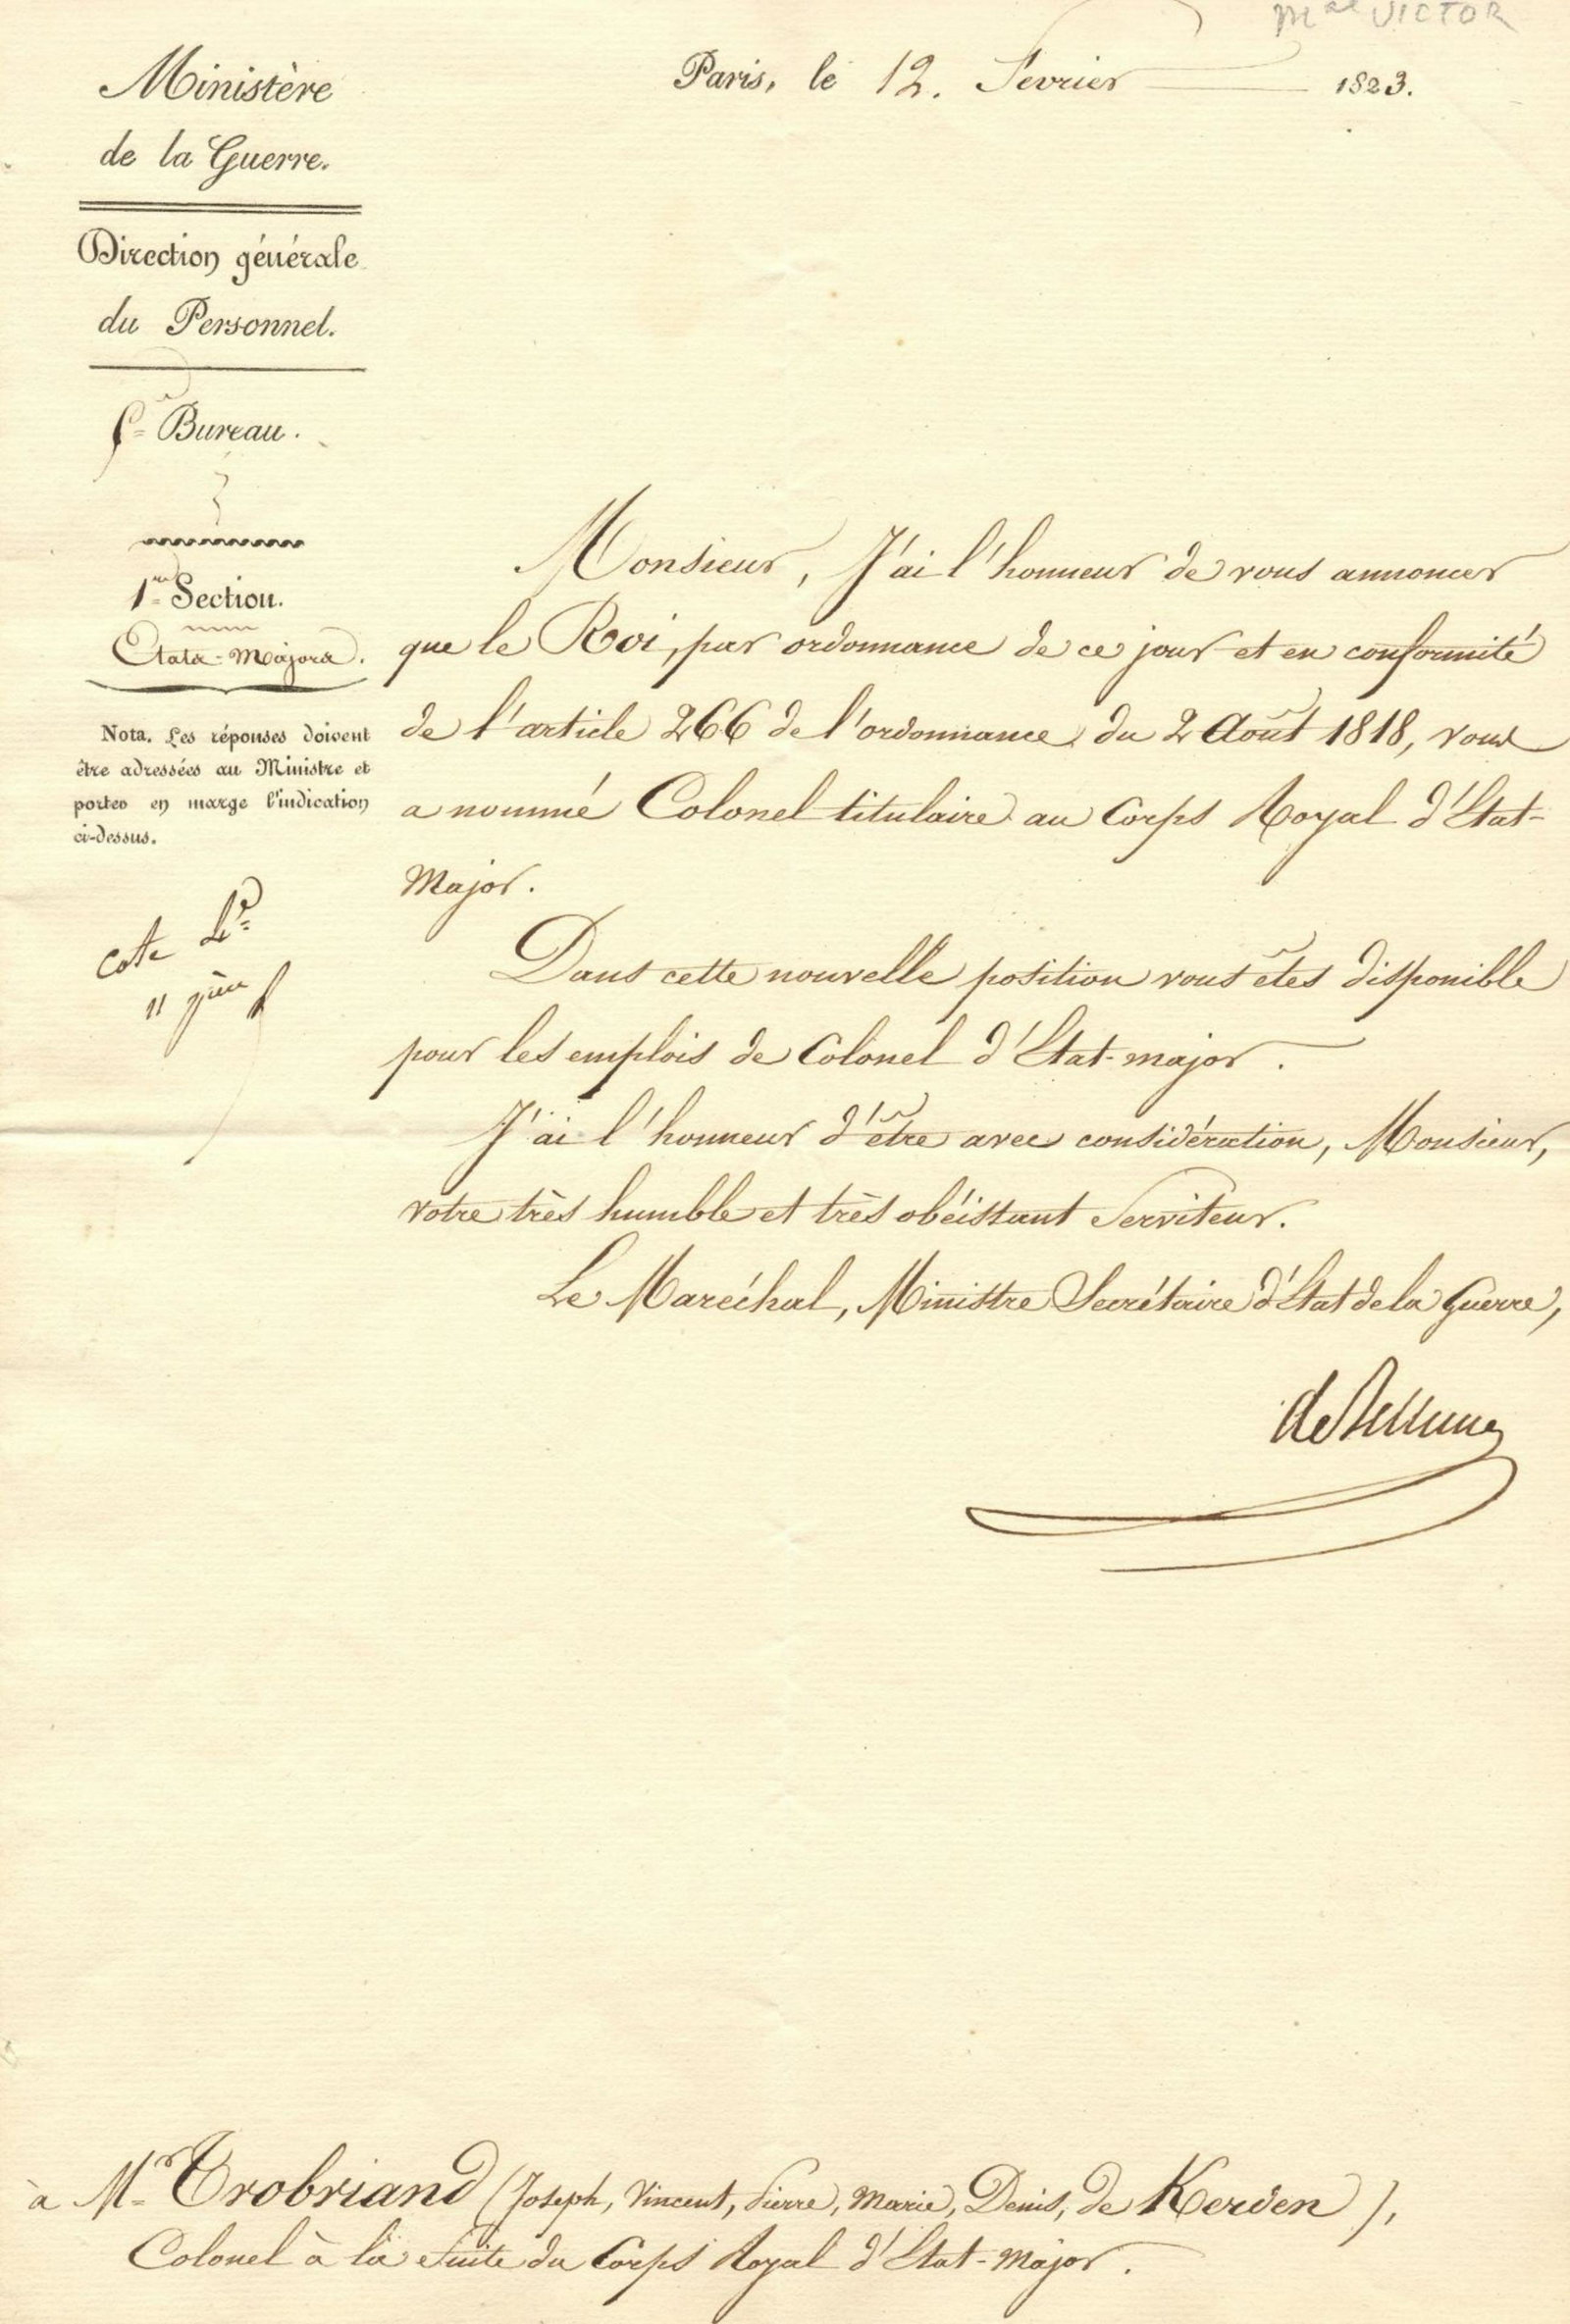 Mal VICTOR
Ministère
de la Guerre.
Direction générale
du Personnel.
Bureau.
1re Section.
Etats-Majors.
Nota. Les réponses doivent
être adressées au Ministre et
porter en marge l'indication
ci-dessus.
cote
11
Paris, le 12. Fevrier 1823.
Monsieur, J'ai l'honneur de vous annoncer
que le Roi, par ordonnance de ce jour et en conformité
de l'article 266 de l'ordonnance du 2 Août 1818, vous
a nommé Colonel titulaire au Corps Royal d'Etat-
Major.
Dans cette nouvelle position vous êtes disponible
pour les emplois de Colonel d'Etat-major.
J'ai l'honneur d'être avec considération, Monsieur,
votre très humble et très obéissant Serviteur.
Le Maréchal, Ministre Secrétaire d'Etat de la Guerre,
de Bellune
à Mr Trobriand (Joseph, Vincent, Pierre, Marie, Denis, de Kerden),
Colonel à la Suite du Corps Royal d'Etat-Major.